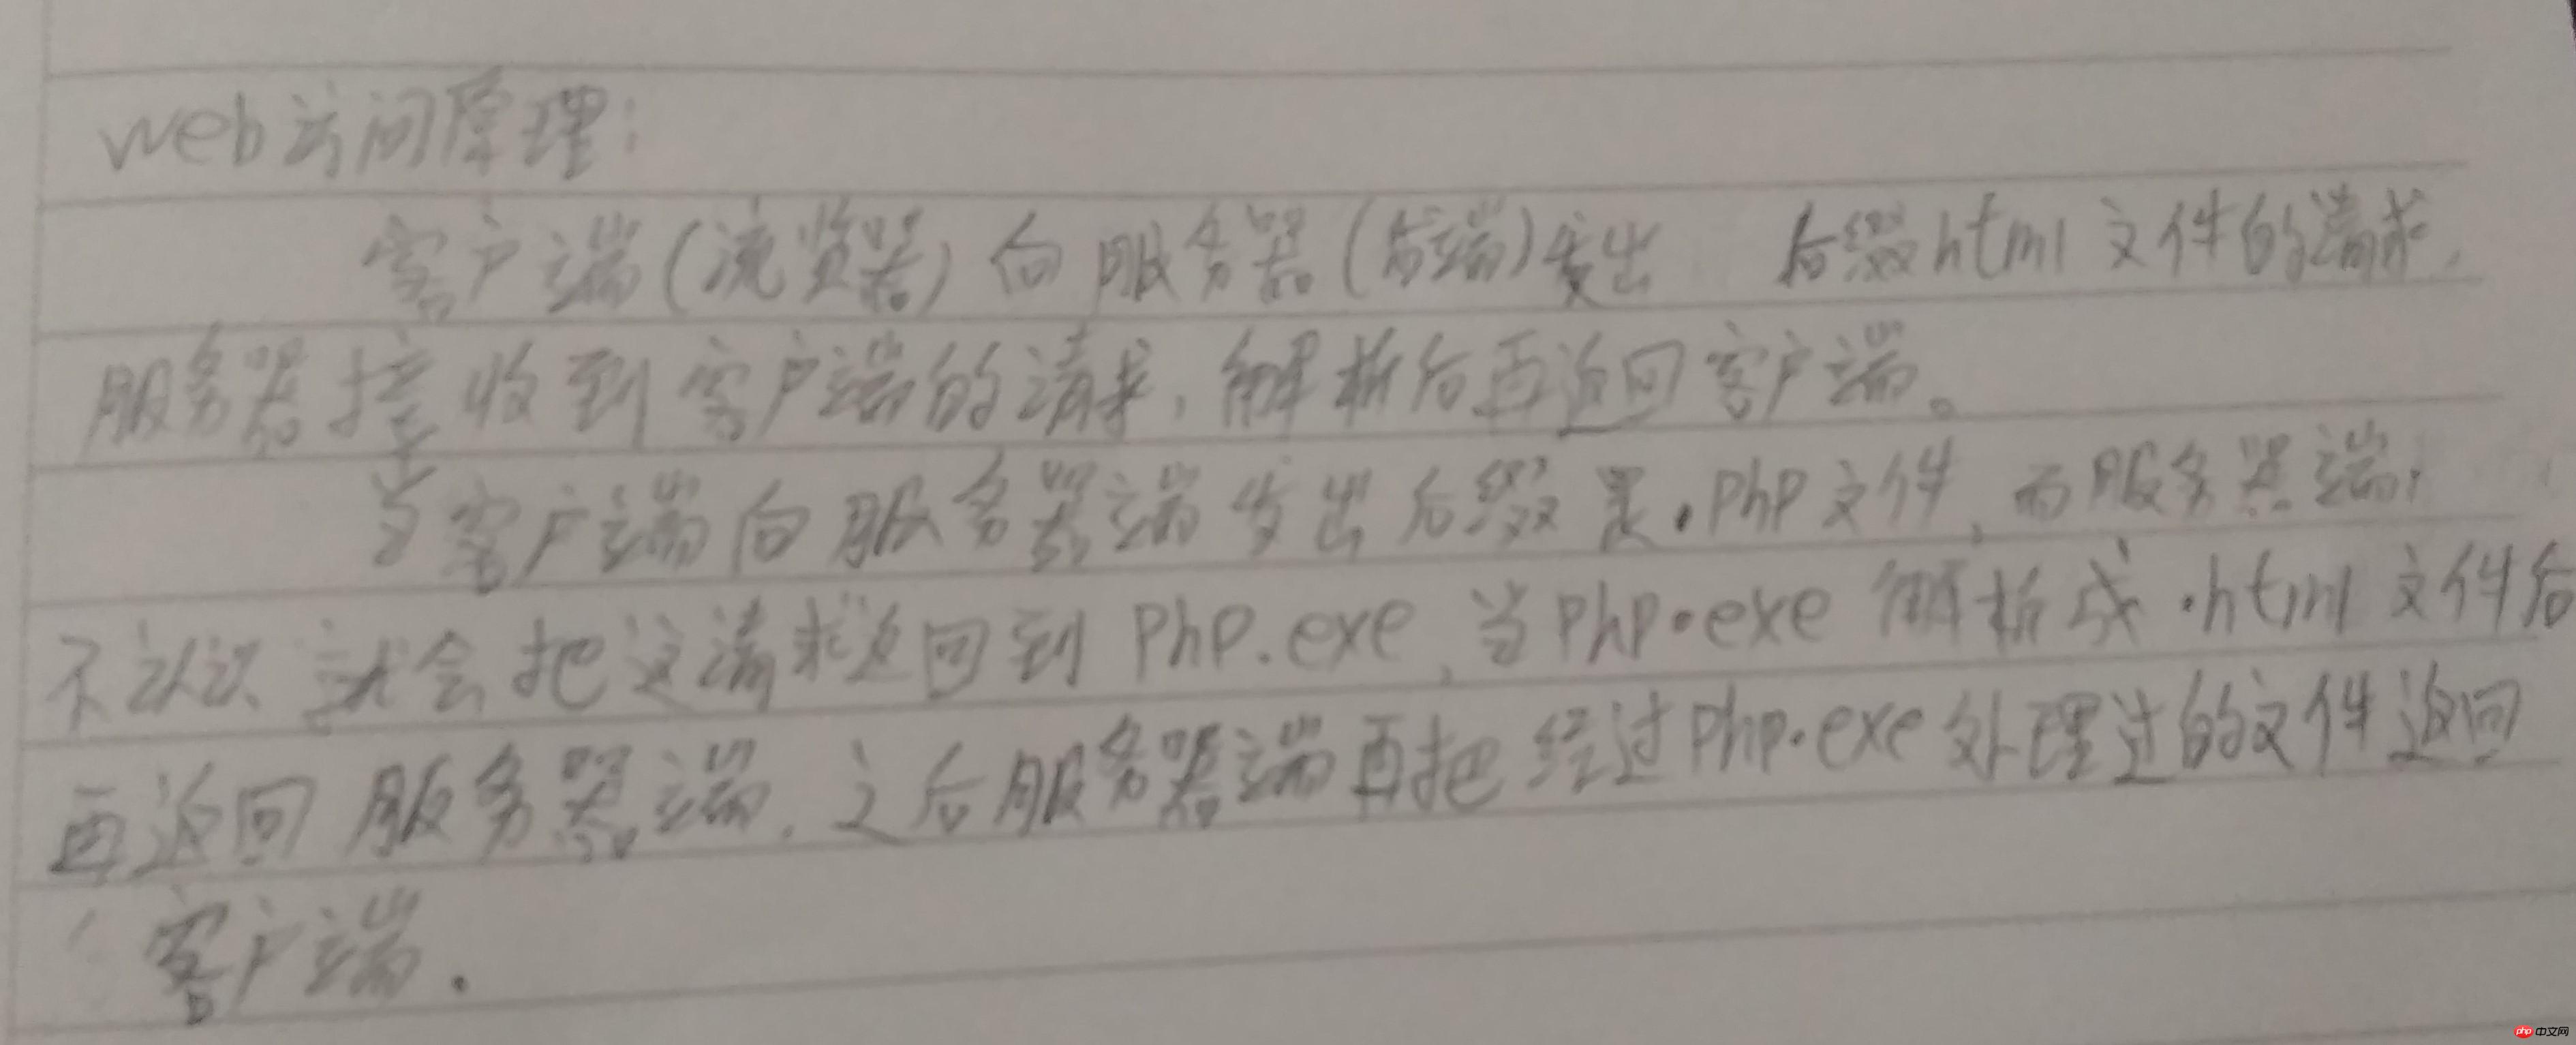 web访问原理:
客户端(流览器)向服务器(后端)发出 后缀html文件的请求,
服务器接收到客户端的请求,解析后再返回客户端。
当客户端向服务器端发出后缀是.php文件,而服务器端,
不认识 就会把这请求返回到 php.exe,当php.exe 解析成.html文件后
再返回服务器端.之后服务器端再把经过php.exe处理过的文件返回
客户端.
php 中文网